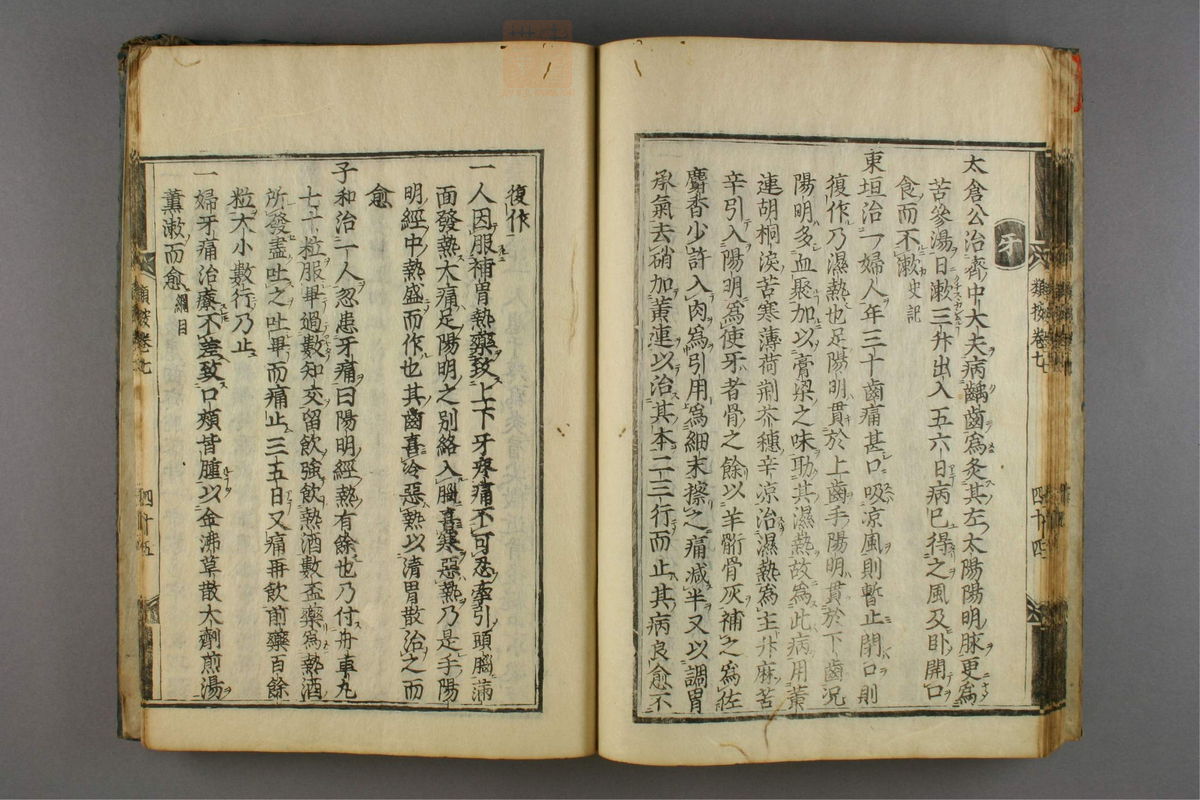 牙
太倉公治齊中大夫病齲齒爲灸其左太陽陽明脉更爲
苦參湯日漱三升出入五六日病已得之風及卧開口
食而不漱史記
東垣治一婦人年三十齒痛甚口吸凉風則暫止閉口則
復作乃濕熱也足陽明貫於上齒手陽明貫於下齒況
陽明多血聚加以膏梁之味助其濕熱故爲此病用黄
連胡桐淚苦寒薄荷荊芥穗辛凉治濕熱爲主升麻苦
辛引入陽明爲使牙者骨之餘以羊䯒骨灰補之爲佐
麝香少許入肉爲引用爲細末擦之痛减半又以調胃
承氣去硝加黄連以治其本二三行而止其病良愈不
類按卷七
四十四
復作
一人因服補胃熱藥致上下牙疼痛不可忍牽引頭腦滿
面發熱大痛足陽明之别絡入腦喜寒惡熱乃是手陽
明經中熱盛而作也其齒喜冷惡熱以清胃散治之而
愈
子和治一人忽患牙痛曰陽明經熱有餘也乃付舟車丸
七十粒服畢過數知交留飲強飲熱酒數盃藥爲熱酒
所發盡吐之吐畢而痛止三五日又痛再飲前藥百餘
粒大小數行乃止
一婦牙痛治療不差致口頰皆腫以金沸草散大劑煎湯
薫漱而愈綱目
類按卷七
四十五